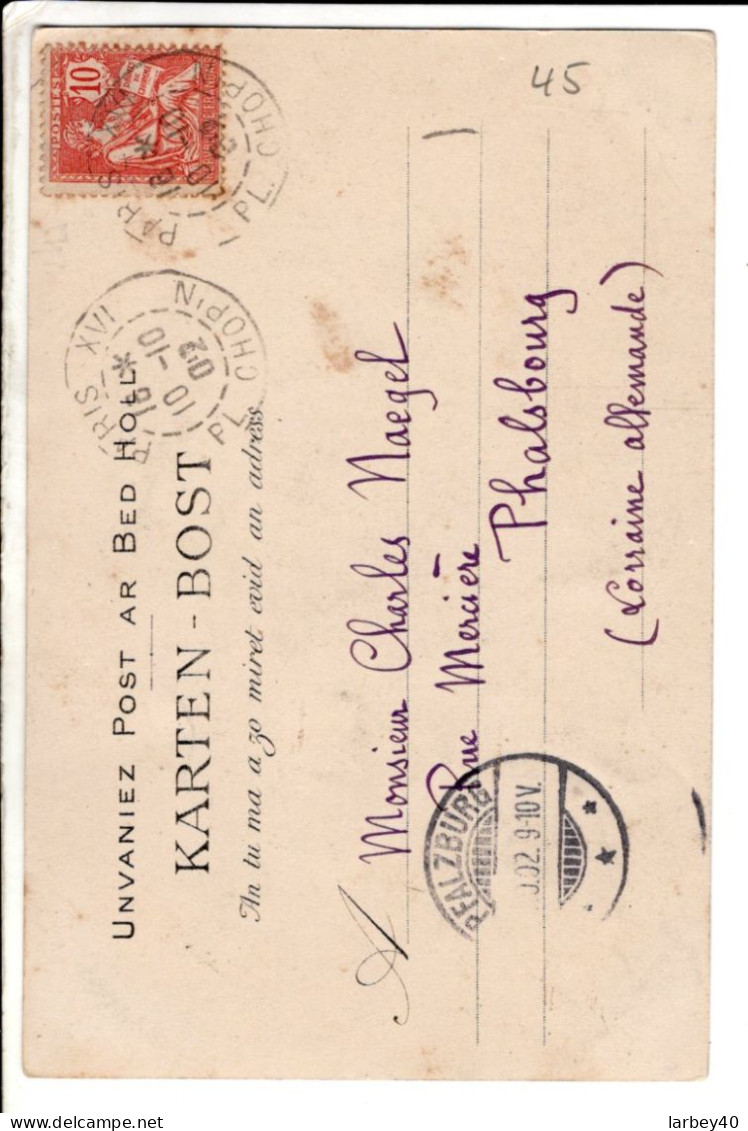 45
10
POSTES
PARIS XVI
PL. CHOPIN
10
PARIS XVI
PL. CHOPIN
16 *
10-10
02
UNVANIEZ POST AR BED HOLL.
KARTEN-BOST
An tu ma a zo miret evid an adress.
A Monsieur Charles Naegel
Rue Mercière
Phalsbourg
(Lorraine allemande)
PFALZBURG
.02. 9-10 V.
larbey40